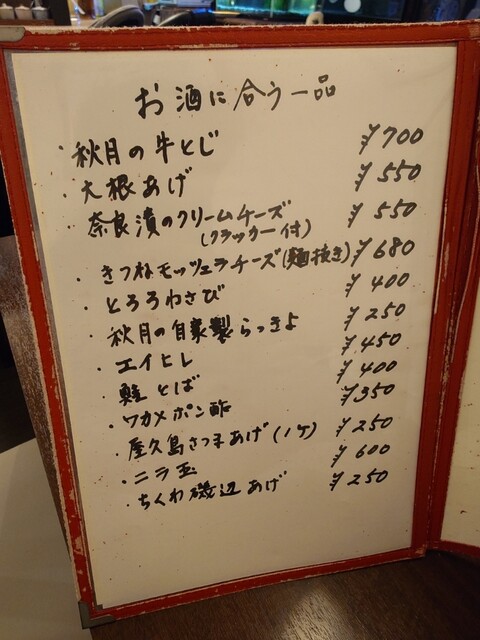 お酒に合う一品
・秋月の牛とじ ¥700
・大根あげ ¥550
・奈良漬のクリームチーズ ¥550
(クラッカー付)
・きつねモッツェラチーズ(麺抜き) ¥680
・とろろわさび ¥400
・秋月の自家製らっきょ ¥250
・エイヒレ ¥450
・鮭とば ¥400
・ワカメポン酢 ¥350
・屋久島さつま子あげ(1ケ) ¥250
・ニラ玉 ¥600
・ちくわ磯辺あげ ¥250